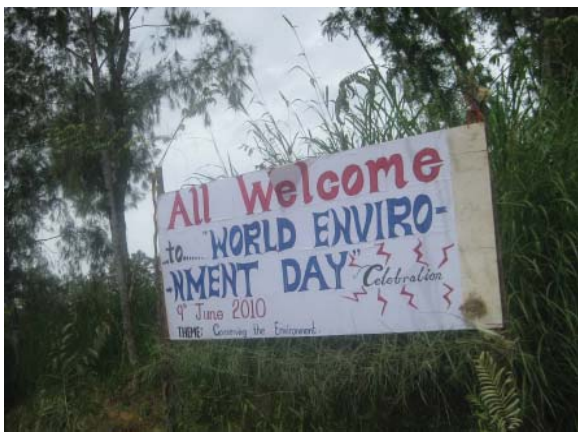 All Welcome
..to......."WORLD ENVIRO-
-NMENT DAY" Celebration
9th June 2010
THEME: Conserving the Environment.